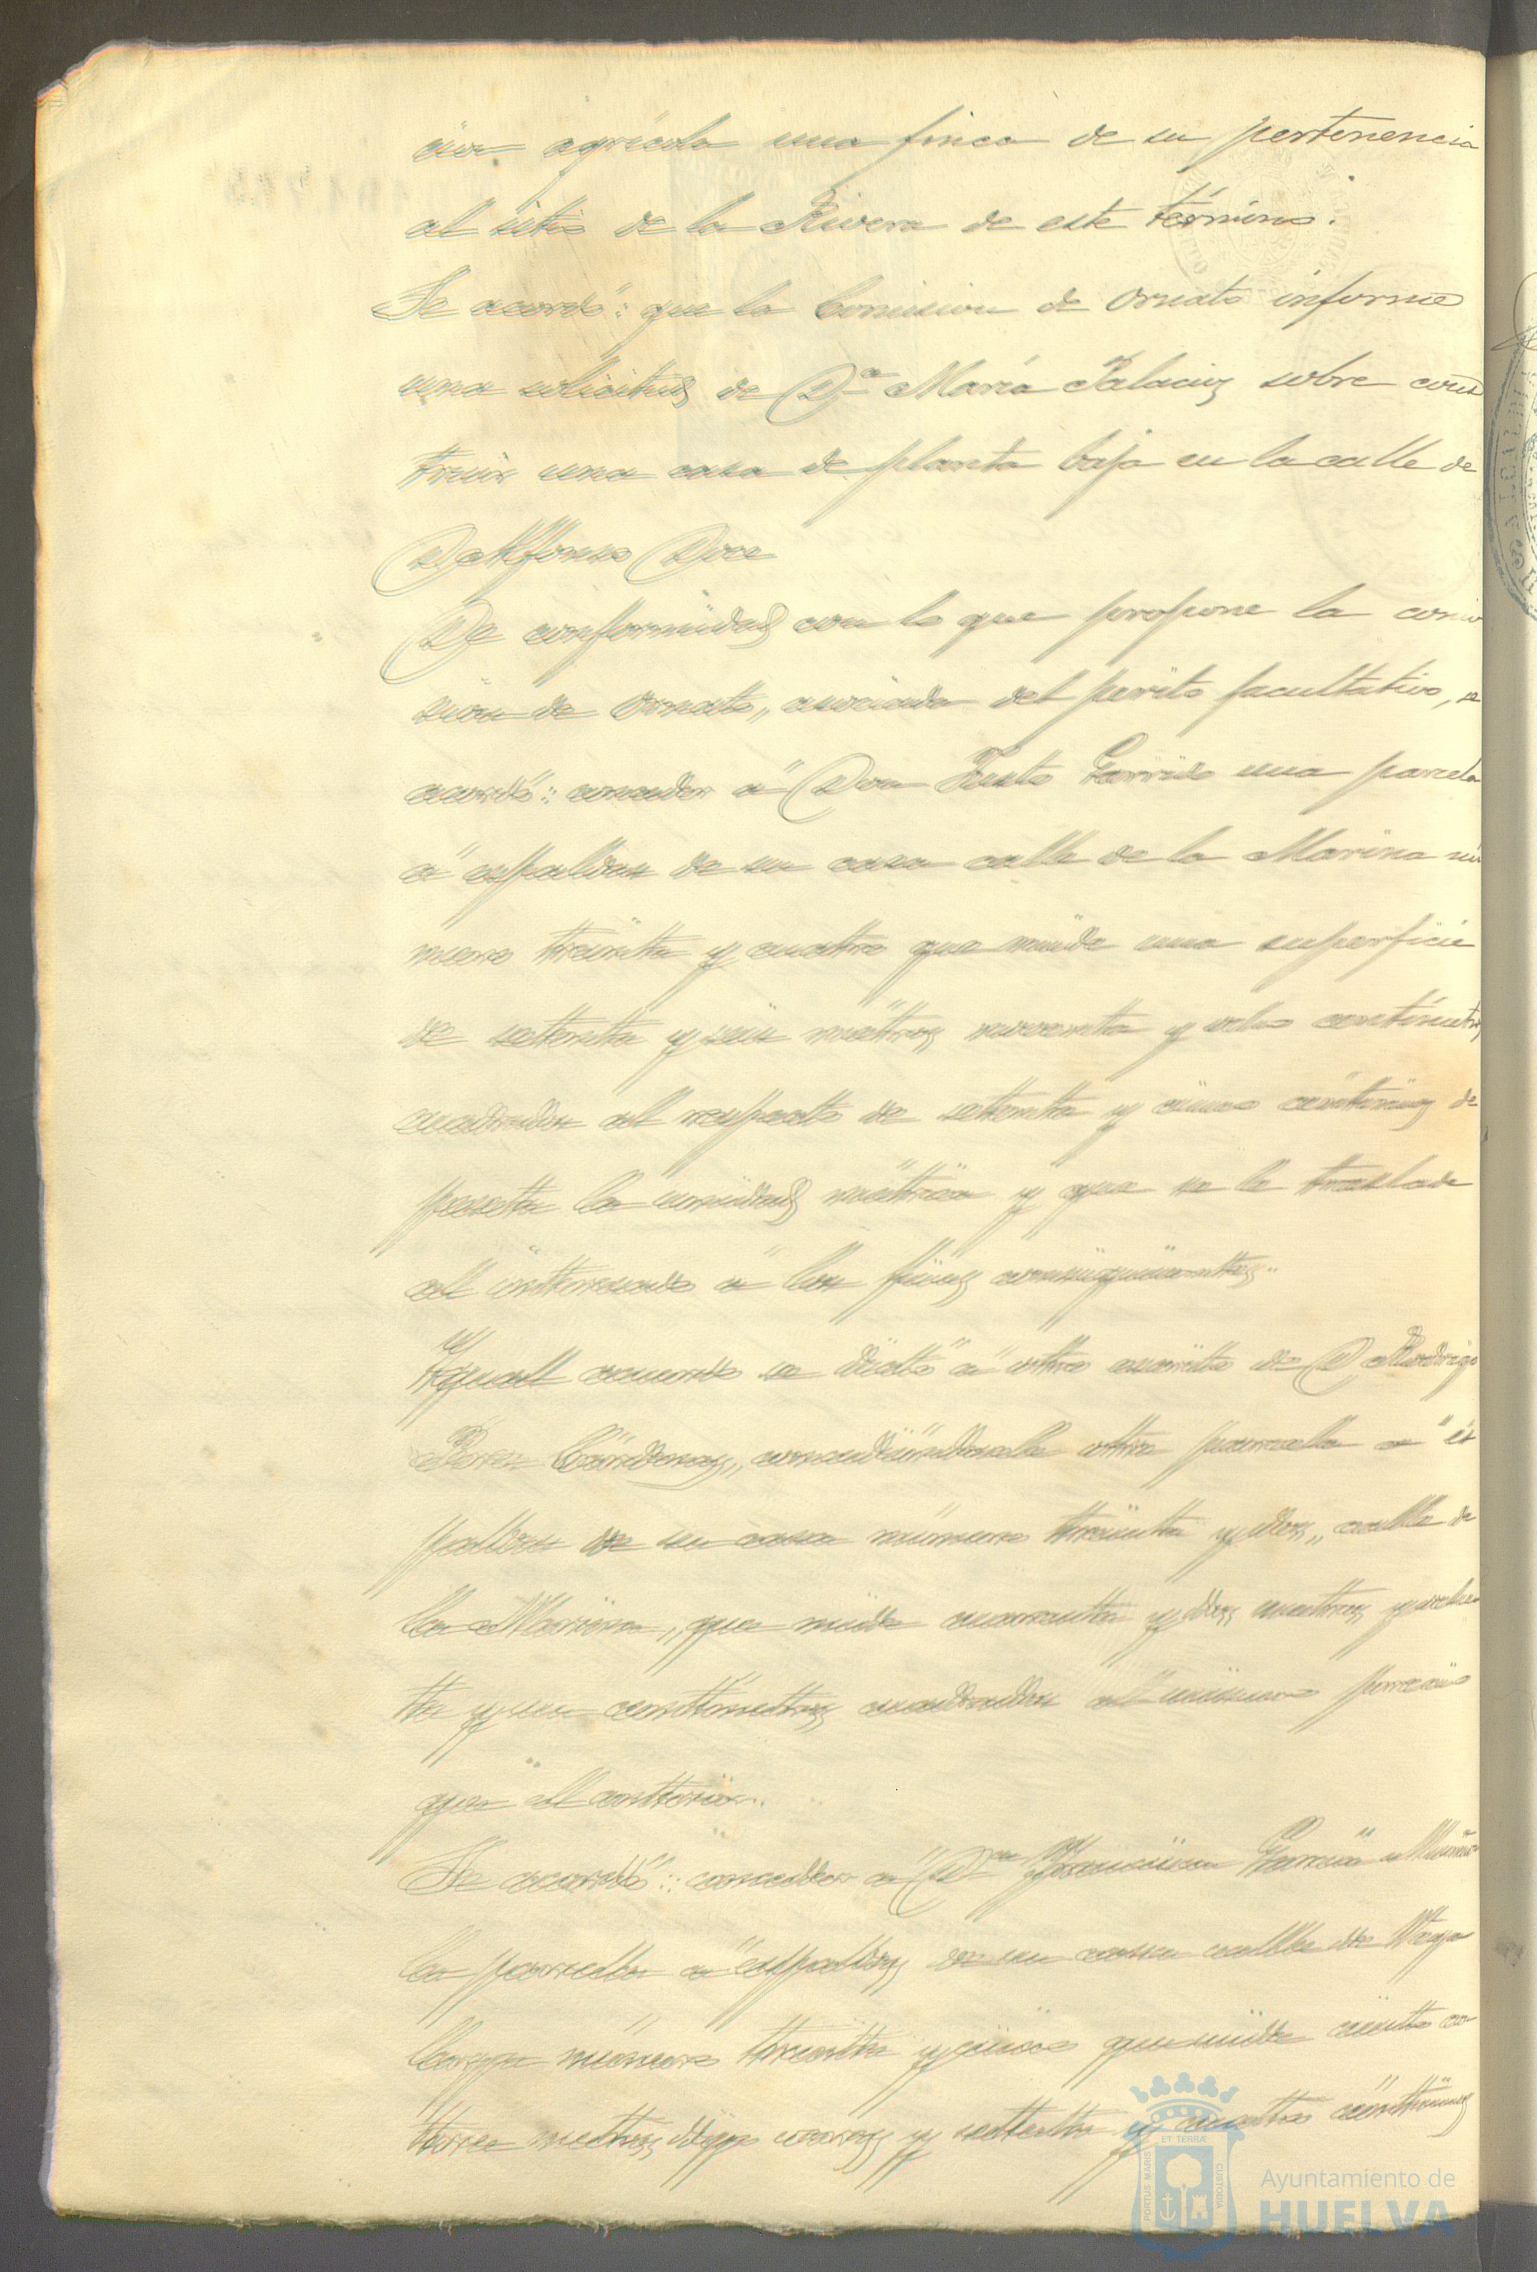 cion agricola una finca de su pertenencia
al sitio de la Rivera de este término.
Se acordó: que la Comision de Ornato informe
una solicitud de D.ª María Palacios sobre cons
truir una casa de planta baja en la calle de
D Alfonso Doce
De conformidad con lo que propone la comi
sion de Ornato, asociada del perito facultativo, se
acordó: conceder á Don Justo Garrido una parcela
á espaldas de su casa calle de la Marina nú
mero treinta y cuatro que mide una superficie
de setenta y seis metros noventa y ocho centímetros
cuadrados al respecto de setenta y cinco céntimos de
peseta la unidad métrica y que se le traslade
al interesado á los fines consiguientes.
Igual acuerdo se dictó á otro escrito de D Rodrigo
Perez Cárdenas, concediéndosele otra parcela á es
paldas de su casa número treinta y dos, calle de
la Marina, que mide cuarenta y dos metros y ochen
ta y un centímetros cuadrados al mismo precio
que el anterior.
Se acordó: conceder á D.ª Francisca Garcia
la parcela á espaldas de su casa calle de Vega
larga número treinta y cinco que mide ciento ca
torce metros digo varas y setenta y cuatro céntimos
ALCALDIA
PORTUS MARIS ET TERRÆ CUSTODIA
Ayuntamiento de
HUELVA